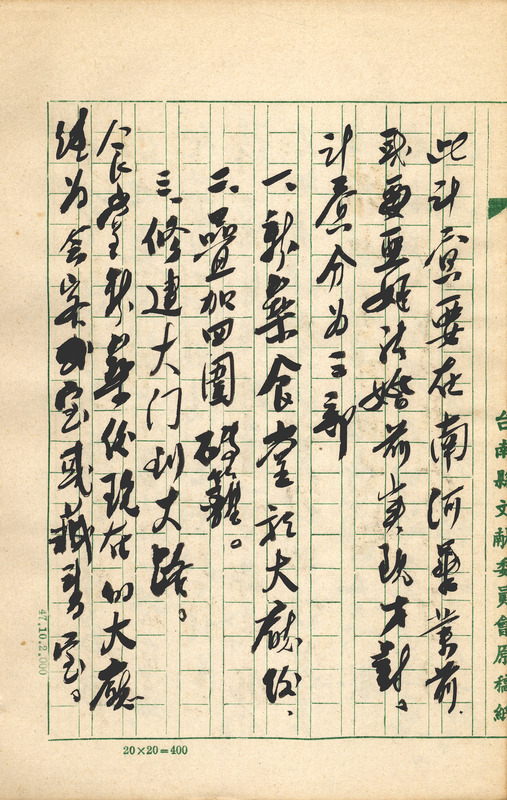 台南縣文献委員會原稿紙
此計畫要在南河畢業前、
或要亞姬結婚前实現才對。
計畫分为三部
一、新築食堂於大廳後、
二、疊加四圍磚籬。
三、修建大门到大路。
食堂新築後現在的大廳
继为会客室或藏書室。
47.10.2.000
20×20=400